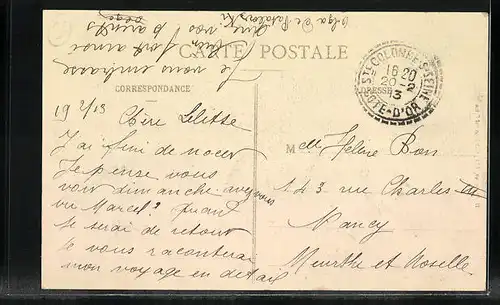 CARTE POSTALE
CORRESPONDANCE
ADRESSE
STE COLOMBE S SEINE
16 20
20 - 2
13
CÔTE-D'OR
19 2/13
Chère Lilitte
J'ai fini de nocer
Je pense vous
voir dimanche avez vous
vu Marcel? Quand
je serai de retour
je vous raconterai
mon voyage en détail
Je vous embrasse
bien fort ainsi
que vos parents
Olga de
Melle Hélène Bon
143 rue Charles III
Nancy
Meurthe et Moselle